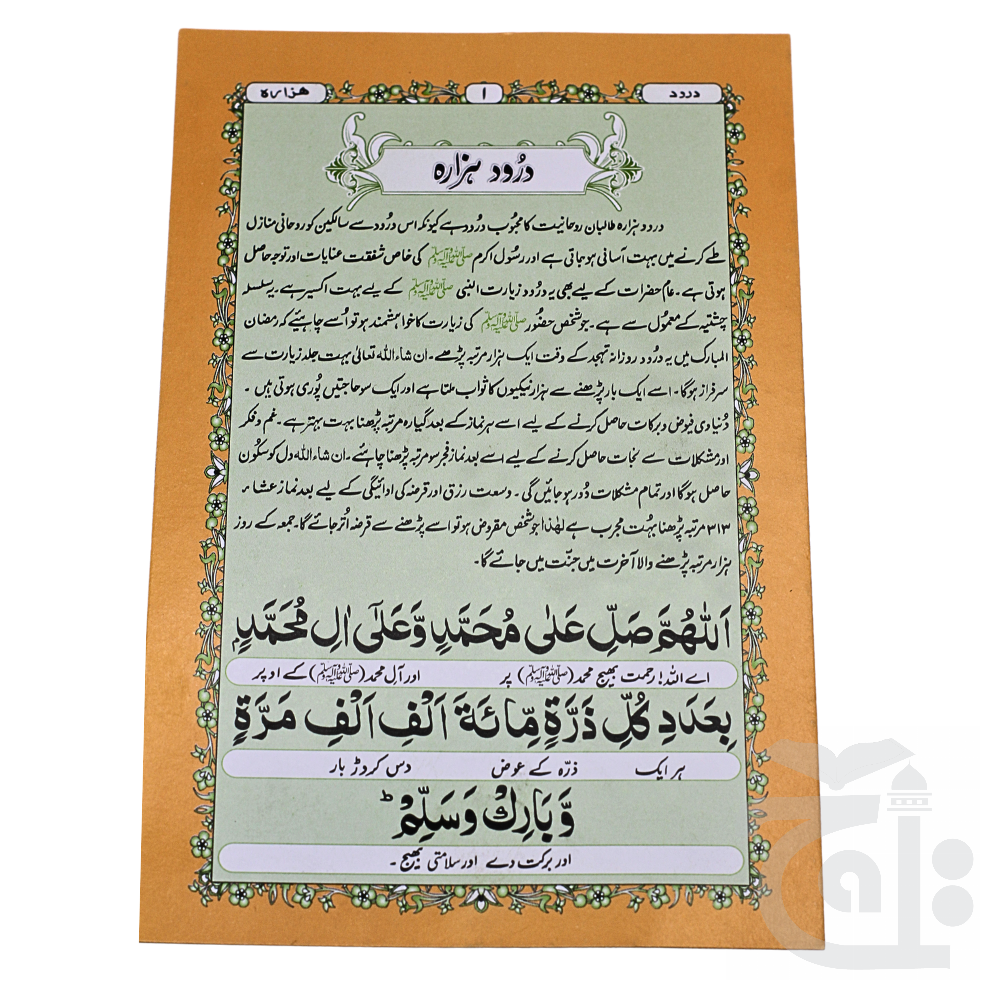 درود
۱
ھزارہ
درُود ہزارہ
درود ہزارہ طالبان روحانیت کا محبُوب درُود ہے کیونکہ اس درُود سے سالکین کو روحانی منازل
طے کرنے میں بہت آسانی ہو جاتی ہے اور رسُول اکرم ﷺ کی خاص شفقت عنایات اور توجہ حاصل
ہوتی ہے۔ عام حضرات کے لیے بھی یہ درُود زیارت النبی ﷺ کے لیے بہت اکسیر ہے۔ یہ سلسلہ
چشتیہ کے معمُول سے ہے۔ جو شخص حضُور ﷺ کی زیارت کا خواہشمند ہو تو اُسے چاہیئے کہ رمضان
المبارک میں یہ درُود روزانہ تہجد کے وقت ایک ہزار مرتبہ پڑھے۔ ان شاء اللہ تعالیٰ بہت جلد زیارت سے
سرفراز ہوگا۔ اسے ایک بار پڑھنے سے ہزار نیکیوں کا ثواب ملتا ہے اور ایک سو حاجتیں پُوری ہوتی ہیں ۔
دُنیاوی فیوض و برکات حاصل کرنے کے لیے اسے ہر نماز کے بعد گیارہ مرتبہ پڑھنا بہت بہتر ہے۔ غم و فکر
اور مشکلات سے نجات حاصل کرنے کے لیے اسے بعد نماز فجر سو مرتبہ پڑھنا چاہئے۔ ان شاء اللہ دل کو سکُون
حاصل ہوگا اور تمام مشکلات دُور ہو جائیں گی۔ وسعت رزق اور قرضہ کی ادائیگی کے لیے بعد نماز عشاء
۳۱۳ مرتبہ پڑھنا بہُت مجرب ہے لھٰذا جو شخص مقروض ہو تو اسے پڑھنے سے قرضہ اُتر جائے گا۔ جمعہ کے روز
ہزار مرتبہ پڑھنے والا آخرت میں جنّت میں جائے گا۔
اَللّٰهُمَّ صَلِّ عَلٰى مُحَمَّدٍ وَّعَلٰٓى اٰلِ مُحَمَّدٍۭ
اے اللہ! رحمت بھیج محمد (ﷺ) پر اور آلِ محمد (ﷺ) کے اوپر
بِعَدَدِ كُلِّ ذَرَّةٍ مِّائَةَ اَلْفِ اَلْفِ مَرَّةٍ
ہر ایک ذرّہ کے عوض دس کروڑ بار
وَّ بَارِكْ وَسَلِّمْ ؕ
اور برکت دے اور سلامتی بھیج ۔